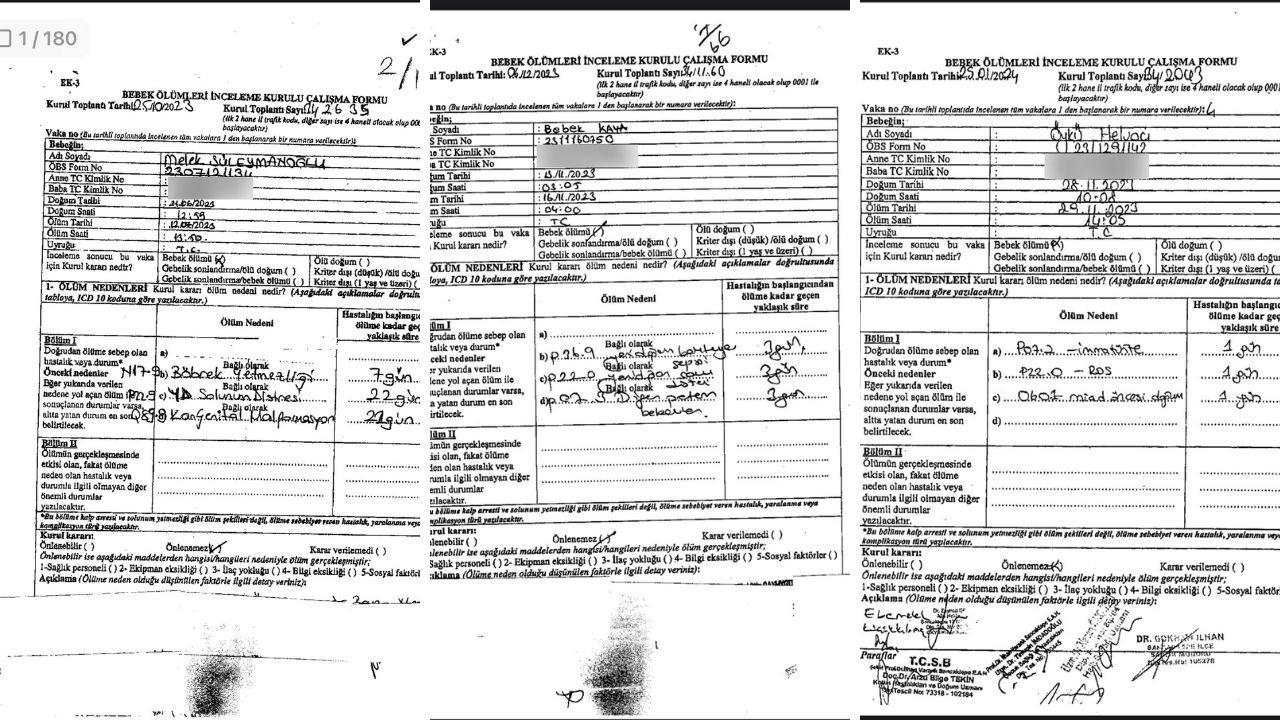 1 / 180
2/1
EK-3
BEBEK ÖLÜMLERİ İNCELEME KURULU ÇALIŞMA FORMU
Kurul Toplantı Tarihi: 25/10/2023 Kurul Toplantı Sayı
(ilk 2 hane il trafik kodu, diğer sayı ise 4 haneli olacak olup 00
başlayacaktır)
Vaka no (Bu tarihli toplantıda incelenen tüm vakalara 1 den başlanarak bir numara verilecektir):
Bebeğin;
Adı Soyadı Melek SÜLEYMANOĞLU
ÖBS Form No
Anne TC Kimlik No
Baba TC Kimlik No
Doğum Tarihi
Doğum Saati : 12:59
Ölüm Tarihi
Ölüm Saati
Uyruğu : T.C.
İnceleme sonucu bu vaka Bebek ölümü (x) Ölü doğum ( )
için Kurul kararı nedir? Gebelik sonlandırma/ölü doğum ( ) Kriter dışı (düşük) /ölü doğu
Gebelik sonlandırma/bebek ölümü ( ) Kriter dışı (1 yaş ve üzeri) (
1- ÖLÜM NEDENLERİ Kurul kararı ölüm nedeni nedir? (Aşağıdaki açıklamalar doğrultu
tabloya, ICD 10 koduna göre yazılacaktır.)
Ölüm Nedeni Hastalığın başlangıc
ölüme kadar geç
yaklaşık süre
Bölüm I
Doğrudan ölüme sebep olan a)
hastalık veya durum* Bağlı olarak
Önceki nedenler N17.9 b) Böbrek Yetmezliği 7 gün
Eğer yukarıda verilen Bağlı olarak
nedene yol açan ölüm ile c) YD Solunum Distresi 22 gün
sonuçlanan durumlar varsa, Bağlı olarak
altta yatan durum en son Konjenital Malformasyon gün
belirtilecek.
Bölüm II
Ölümün gerçekleşmesinde
etkisi olan, fakat ölüme
neden olan hastalık veya
durumla ilgili olmayan diğer
önemli durumlar
yazılacaktır.
*Bu bölüme kalp arresti ve solunum yetmezliği gibi ölüm şekilleri değil, ölüme sebebiyet veren hastalık, yaralanma veya
komplikasyon türü yazılacaktır.
Kurul kararı:
Önlenebilir ( ) Önlenemez (✓) Karar verilemedi ( )
Önlenebilir ise aşağıdaki maddelerden hangisi/hangileri nedeniyle ölüm gerçekleşmiştir;
1-Sağlık personeli ( ) 2- Ekipman eksikliği ( ) 3- İlaç yokluğu ( ) 4- Bilgi eksikliği ( ) 5-Sosyal faktörl
Açıklama (Ölüme neden olduğu düşünülen faktörle ilgili detay veriniz):
66
EK-3
BEBEK ÖLÜMLERİ İNCELEME KURULU ÇALIŞMA FORMU
ul Toplantı Tarihi: 06/12/2023 Kurul Toplantı Sayı
(ilk 2 hane il trafik kodu, diğer sayı ise 4 haneli olacak olup 0001 ile
başlayacaktır)
a no (Bu tarihli toplantıda incelenen tüm vakalara 1 den başlanarak bir numara verilecektir):
beğin;
Soyadı : Bebek KAYA
S Form No : 231160250
ne TC Kimlik No
ba TC Kimlik No
ğum Tarihi : 15/11/2023
ğum Saati : 03:05
üm Tarihi : 16/11/2023
üm Saati : 04:00
yruğu : TC
eleme sonucu bu vaka Bebek ölümü (x) Ölü doğum ( )
n Kurul kararı nedir? Gebelik sonlandırma/ölü doğum ( ) Kriter dışı (düşük) /ölü doğum ( )
Gebelik sonlandırma/bebek ölümü ( ) Kriter dışı (1 yaş ve üzeri) ( )
ÖLÜM NEDENLERİ Kurul kararı ölüm nedeni nedir? (Aşağıdaki açıklamalar doğrultusunda
loya, ICD 10 koduna göre yazılacaktır.)
Ölüm Nedeni Hastalığın başlangıcından
ölüme kadar geçen
yaklaşık süre
üm I
ğrudan ölüme sebep olan a)
stalık veya durum* Bağlı olarak
ceki nedenler b) p36.9 yenidoğan bakteriye sepsi gün
er yukarıda verilen Bağlı olarak
dene yol açan ölüm ile c) p22.0 yenidoğan gün
nuçlanan durumlar varsa, Bağlı olarak
ta yatan durum en son d) p07.3 Diğer preterm gün
lirtilecek. bebekler
üm II
ümün gerçekleşmesinde
kisi olan, fakat ölüme
den olan hastalık veya
rumla ilgili olmayan diğer
emli durumlar
zılacaktır.
u bölüme kalp arresti ve solunum yetmezliği gibi ölüm şekilleri değil, ölüme sebebiyet veren hastalık, yaralanma veya
mplikasyon türü yazılacaktır.
rul kararı:
lenebilir ( ) Önlenemez (✓) Karar verilemedi ( )
lenebilir ise aşağıdaki maddelerden hangisi/hangileri nedeniyle ölüm gerçekleşmiştir;
Sağlık personeli ( ) 2- Ekipman eksikliği ( ) 3- İlaç yokluğu ( ) 4- Bilgi eksikliği ( ) 5-Sosyal faktörler ( )
çıklama (Ölüme neden olduğu düşünülen faktörle ilgili detay veriniz):
EK-3
BEBEK ÖLÜMLERİ İNCELEME KURULU ÇALIŞMA FORMU
Kurul Toplantı Tarihi: 25.01/2024 Kurul Toplantı Sayı: 34/2003
(ilk 2 hane il trafik kodu, diğer sayı ise 4 haneli olacak olup 0001
başlayacaktır)
Vaka no (Bu tarihli toplantıda incelenen tüm vakalara 1 den başlanarak bir numara verilecektir): 4
Bebeğin;
Adı Soyadı : Öykü Helvacı
ÖBS Form No : 231129142
Anne TC Kimlik No :
Baba TC Kimlik No :
Doğum Tarihi : 28.11.2023
Doğum Saati : 10:08
Ölüm Tarihi : 29.11.2023
Ölüm Saati : 14:05
Uyruğu : T.C
İnceleme sonucu bu vaka Bebek ölümü (x) Ölü doğum ( )
için Kurul kararı nedir? Gebelik sonlandırma/ölü doğum ( ) Kriter dışı (düşük) /ölü doğum (
Gebelik sonlandırma/bebek ölümü ( ) Kriter dışı (1 yaş ve üzeri) ( )
1- ÖLÜM NEDENLERİ Kurul kararı ölüm nedeni nedir? (Aşağıdaki açıklamalar doğrultusunda ta
ICD 10 koduna göre yazılacaktır.)
Ölüm Nedeni Hastalığın başlangıc
ölüme kadar geçen
yaklaşık süre
Bölüm I
Doğrudan ölüme sebep olan a) P07.2 - immatürite 1 gün
hastalık veya durum*
Önceki nedenler b) P22.0 - RDS 1 gün
Eğer yukarıda verilen
nedene yol açan ölüm ile c) O60.1 miad öncesi doğum 1 gün
sonuçlanan durumlar varsa,
altta yatan durum en son d)
belirtilecek.
Bölüm II
Ölümün gerçekleşmesinde
etkisi olan, fakat ölüme
neden olan hastalık veya
durumla ilgili olmayan diğer
önemli durumlar
yazılacaktır.
*Bu bölüme kalp arresti ve solunum yetmezliği gibi ölüm şekilleri değil, ölüme sebebiyet veren hastalık, yaralanma veya
komplikasyon türü yazılacaktır.
Kurul kararı:
Önlenebilir ( ) Önlenemez (x) Karar verilemedi ( )
Önlenebilir ise aşağıdaki maddelerden hangisi/hangileri nedeniyle ölüm gerçekleşmiştir;
1-Sağlık personeli ( ) 2- Ekipman eksikliği ( ) 3- İlaç yokluğu ( ) 4- Bilgi eksikliği ( ) 5-Sosyal faktör
Açıklama (Ölüme neden olduğu düşünülen faktörle ilgili detay veriniz):
Paraflar
T.C.S.B
Doç.Dr. Arzu Bilge TEKİN
Kadın Hastalıkları ve Doğum Uzmanı
Dip.Tescil No: 73318 - 102184
DR. GÖKHAN İLHAN